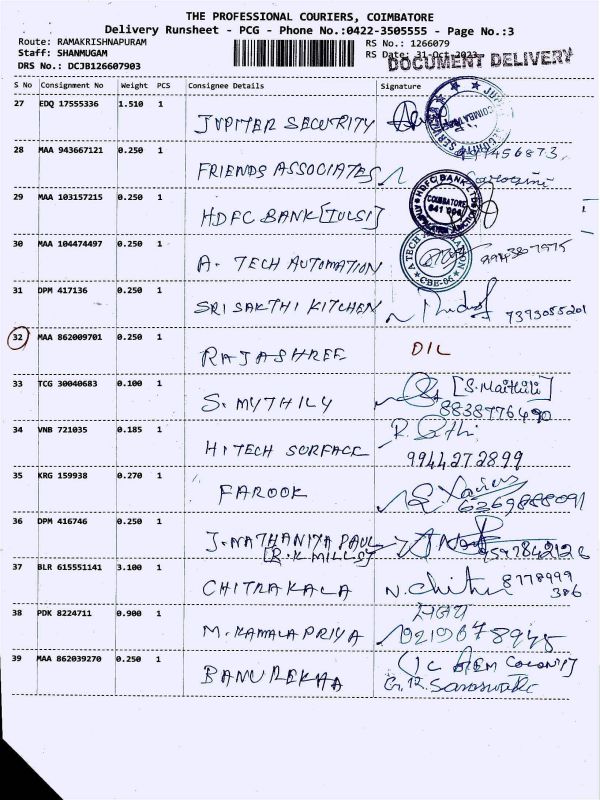 THE PROFESSIONAL COURIERS, COIMBATORE
Delivery Runsheet - PCG - Phone No.:0422-3505555 - Page No.:3
Route: RAMAKRISHNAPURAM
Staff: SHANMUGAM
DRS No.: DCJB126607903
RS No.: 1266079
RS Date: 31-Oct-2023
DOCUMENT DELIVERY
S No Consignment No Weight PCS Consignee Details Signature
27 EDQ 17555336 1.510 1 JUPITER SECURITY
28 MAA 943667121 0.250 1 FRIENDS ASSOCIATES
29 MAA 103157215 0.250 1 HDFC BANK [TULSI] HDFC BANK LTD COIMBATORE
30 MAA 104474497 0.250 1 A. TECH AUTOMATION A TECH AUTOMATION CBE-06
31 DPM 417136 0.250 1 SRI SAKTHI KITCHEN 7393055201
32 MAA 862009701 0.250 1 RAJASHREE D/L
33 TCG 30040683 0.100 1 S. MYTHILY [S. Maithili]
8838776490
34 VNB 721035 0.185 1 HITECH SURFACE
9944272899
35 KRG 159938 0.270 1 FAROOK Xavier
6269888091
36 DPM 416746 0.250 1 J. NATHANIYA PAUL
[R.K MILLS] 9597842126
37 BLR 615551141 3.100 1 CHITRAKALA N. Chitra 8778999
386
38 PDK 8224711 0.900 1 M. KAMALA PRIYA
39 MAA 862039270 0.250 1 BANU REKAA
G.R. Saraswathi